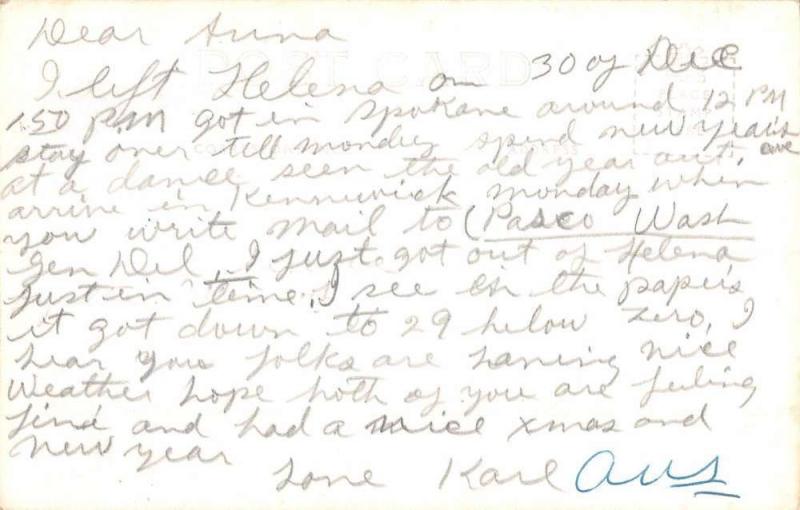 Dear Anna
I left Helena on 30 of Dec
1.50 P.M got in Spokane around 12 PM
stay over till monday spend new year's eve
at a dance seen the old year out,
arrive in Kennewick monday when
you write mail to (Pasco Wash
Gen Del, I just got out of Helena
just in time. I see in the papers
it got down to 29 below zero, I
hear you folks are having nice
weather hope both of you are feeling
fine and had a nice xmas and
new year
Love Karl Ans
POST CARD